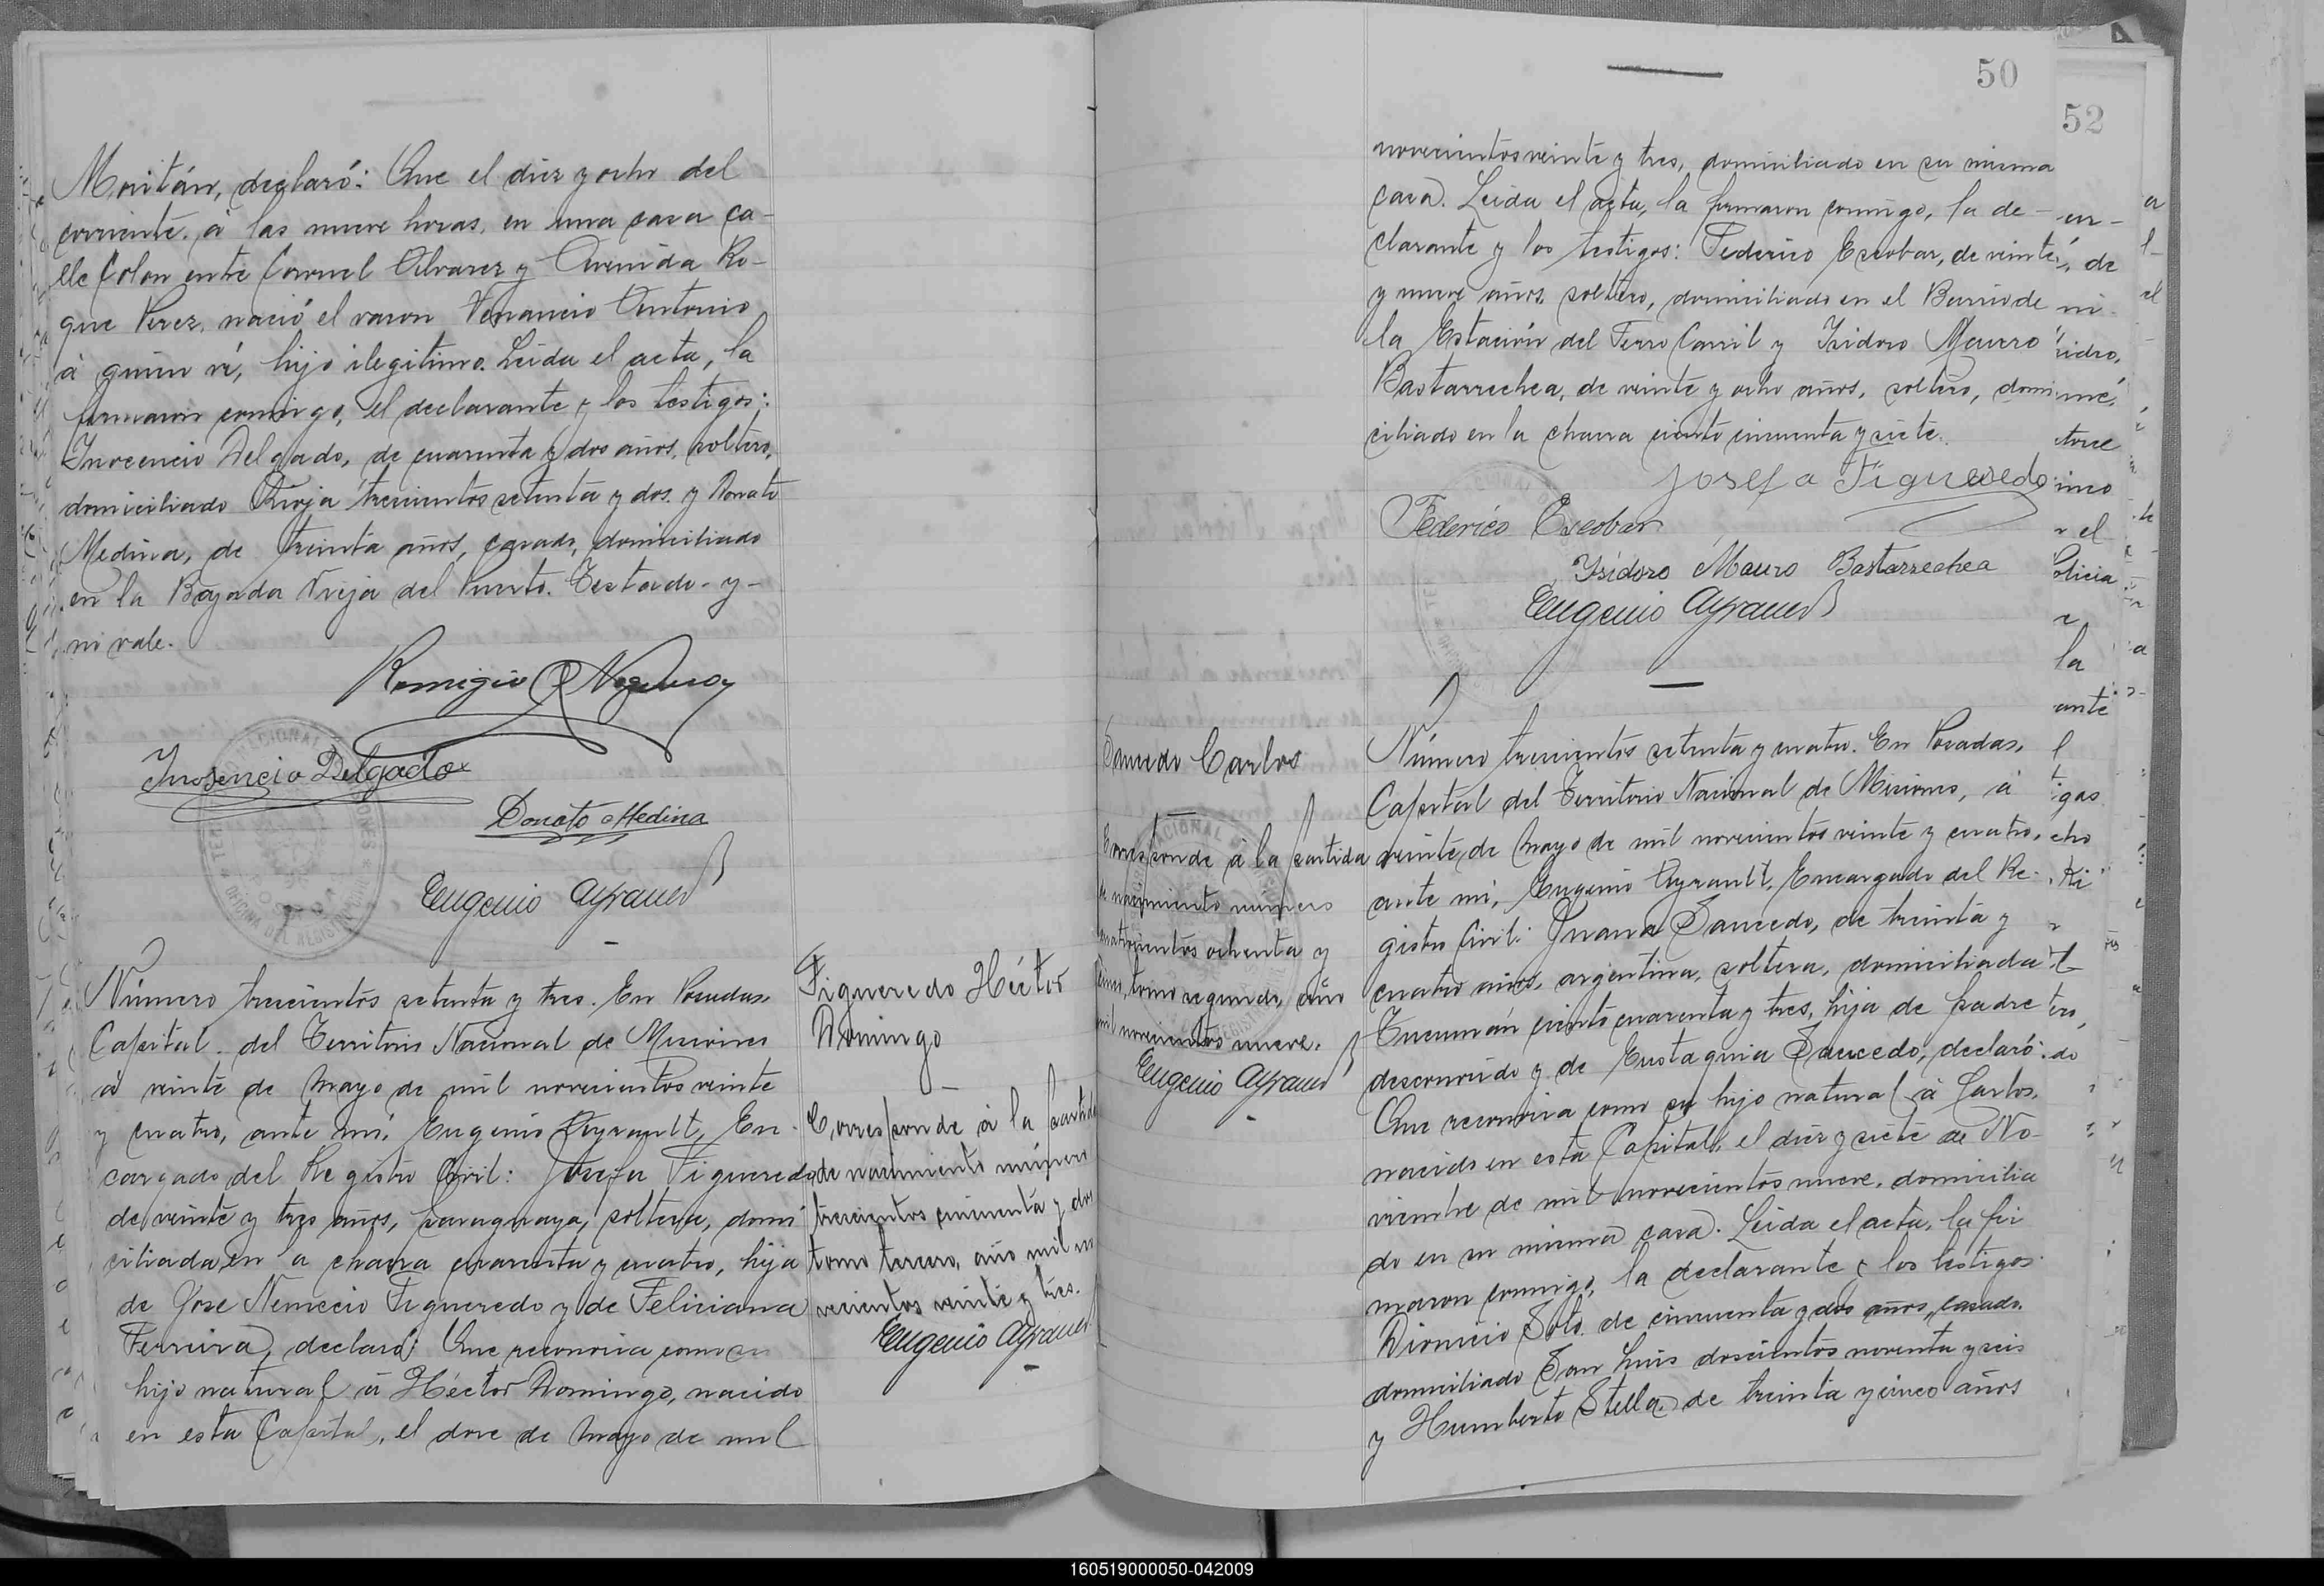 Moritán, declaró: Que el diez y ocho del
corriente, á las nueve horas, en una casa ca-
lle Colon entre Coronel Alvarez y Avenida Ro-
que Perez, nació el varon Venancio Antonio
á quien ví, hijo ilegitimo. Leida el acta, la
firmaron conmigo, el declarante y los testigos:
Inocencio Delgado, de cuarenta y dos años, soltero,
domiciliado Rioja trescientos setenta y dos y Donato
Medina, de treinta años, casado, domiciliado
en la Bajada Vieja del Puerto. Testado-y-
no vale.
Remigio
Inosencio Delgado
Donato Medina
Eugenio Ayrault
Número trescientos setenta y tres. En Posadas,
Capital del Territorio Nacional de Misiones
á veinte de Mayo de mil novecientos veinte
y cuatro, ante mí, Eugenio Ayrault, En-
cargado del Registro Civil: Josefa Figueredo
de veinte y tres años, paraguaya, soltera, domi-
ciliada en la chacra cuarenta y cuatro, hija
de Jose Nemecio Figueredo y de Feliciana
Ferreira, declaró: Que reconocia como su
hijo natural á Héctor Domingo, nacido
en esta Capital, el doce de Mayo de mil
Figueredo Héctor
Domingo
Corresponde á la partida
de nacimiento número
trescientos cincuenta y dos
tomo tercero, año mil no
vecientos veinte y tres.
Eugenio Ayrault
50
52
novecientos veinte y tres, domiciliado en su misma
casa. Leida el acta, la firmaron conmigo, la de-
clarante y los testigos: Federico Escobar, de veinte
y nueve años, soltero, domiciliado en el Barrio de
la Estación del Ferro Carril y Isidoro Mauro
Bastarrechea, de veinte y ocho años, soltero, domi-
ciliado en la chacra ciento cincuenta y siete.
Josefa Figueredo
Federico Escobar
Isidoro Mauro Bastarrechea
Eugenio Ayrault
Saucedo Carlos
Corresponde á la partida
de nacimiento número
cuatrocientos ochenta y
tomo segundo, año
mil novecientos nueve.
Eugenio Ayrault
Número trescientos setenta y cuatro. En Posadas,
Capital del Territorio Nacional de Misiones, á
veinte de Mayo de mil novecientos veinte y cuatro,
ante mí, Eugenio Ayrault, Encargado del Re-
gistro Civil: Juana Saucedo, de treinta y
cuatro años, argentina, soltera, domiciliada
Tucumán ciento cuarenta y tres, hija de padre
desconocido y de Eustaquia Saucedo, declaró:
Que reconocia como su hijo natural á Carlos,
nacido en esta Capital, el diez y siete de No-
viembre de mil novecientos nueve, domicilia
do en su misma casa. Leida el acta, la fir
maron conmigo, la declarante y los testigos
Dionicio Soto, de cincuenta y dos años, casado,
domiciliado San Luis doscientos noventa y seis
y Humberto Stella, de treinta y cinco años
160519000050-042009